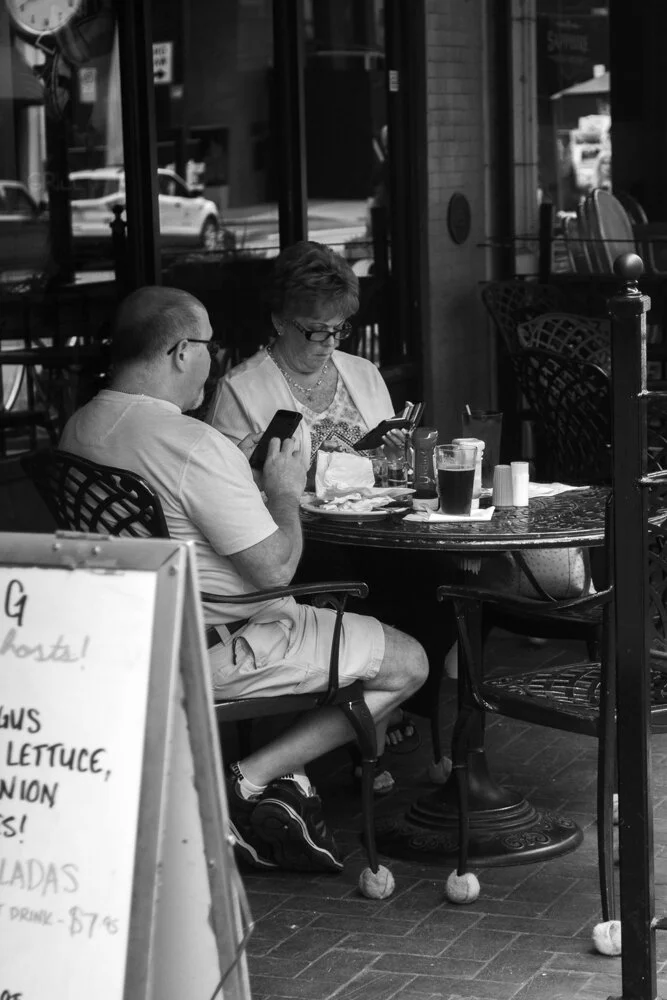 G
hosts!
GUS
LETTUCE,
NION
S!
LADAS
T DRINK - $7.95